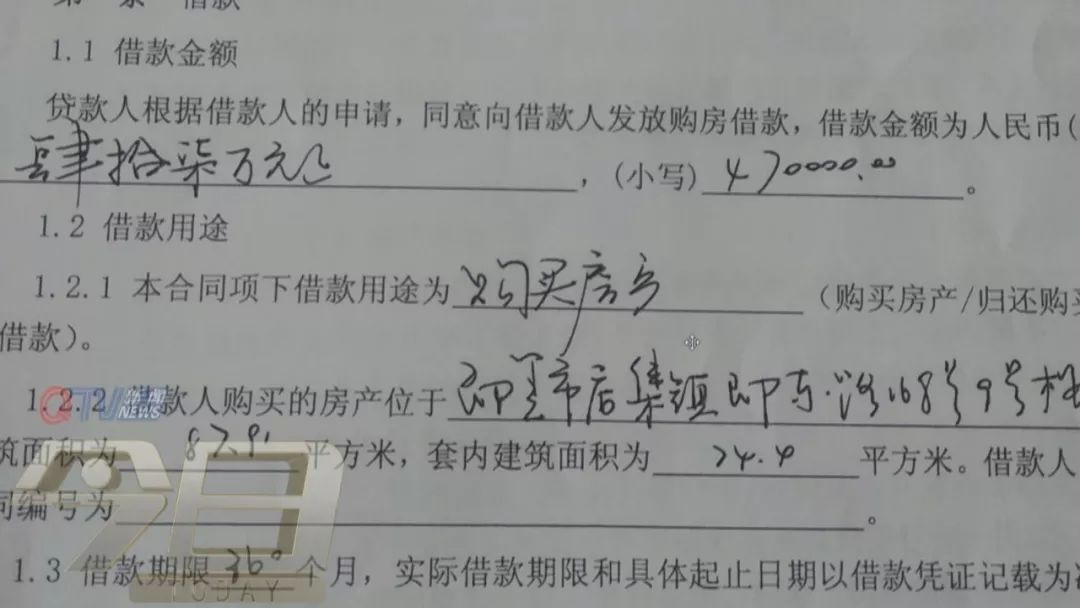 借款
1.1 借款金额
贷款人根据借款人的申请，同意向借款人发放购房借款，借款金额为人民币(
肆拾柒万元正，(小写) 470000.00。
1.2 借款用途
1.2.1 本合同项下借款用途为购买房产（购买房产/归还购买
借款）。
1.2.2 借款人购买的房产位于即墨市店集镇即东路168号9号楼
筑面积为 平方米，套内建筑面积为 74.4 平方米。借款人
同编号为 。
1.3 借款期限 360 个月，实际借款期限和具体起止日期以借款凭证记载为准
QTV 新闻
NEWS
今日
TODAY